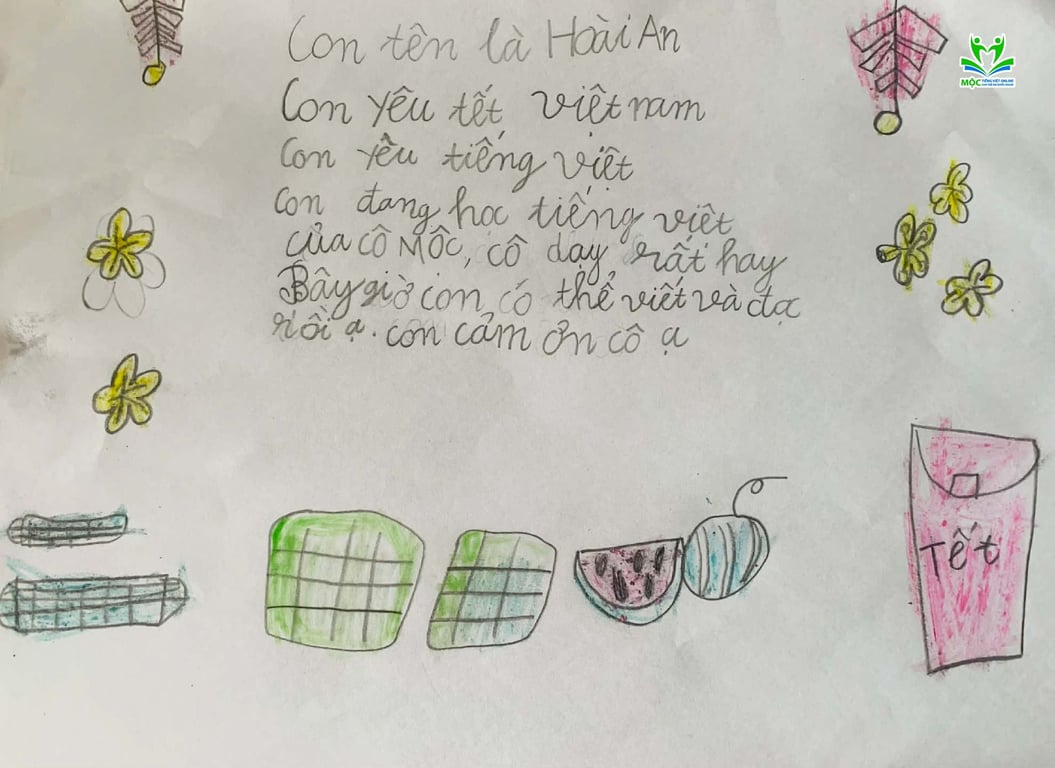 Con tên là Hoài An
Con yêu tết việt nam
Con yêu tiếng việt
Con đang học tiếng việt
của cô Mốc, cô dạy rất hay
Bây giờ con có thể viết và đọc
rồi ạ. con cảm ơn cô ạ
Tết
MỘC
TIẾNG VIỆT ONLINE